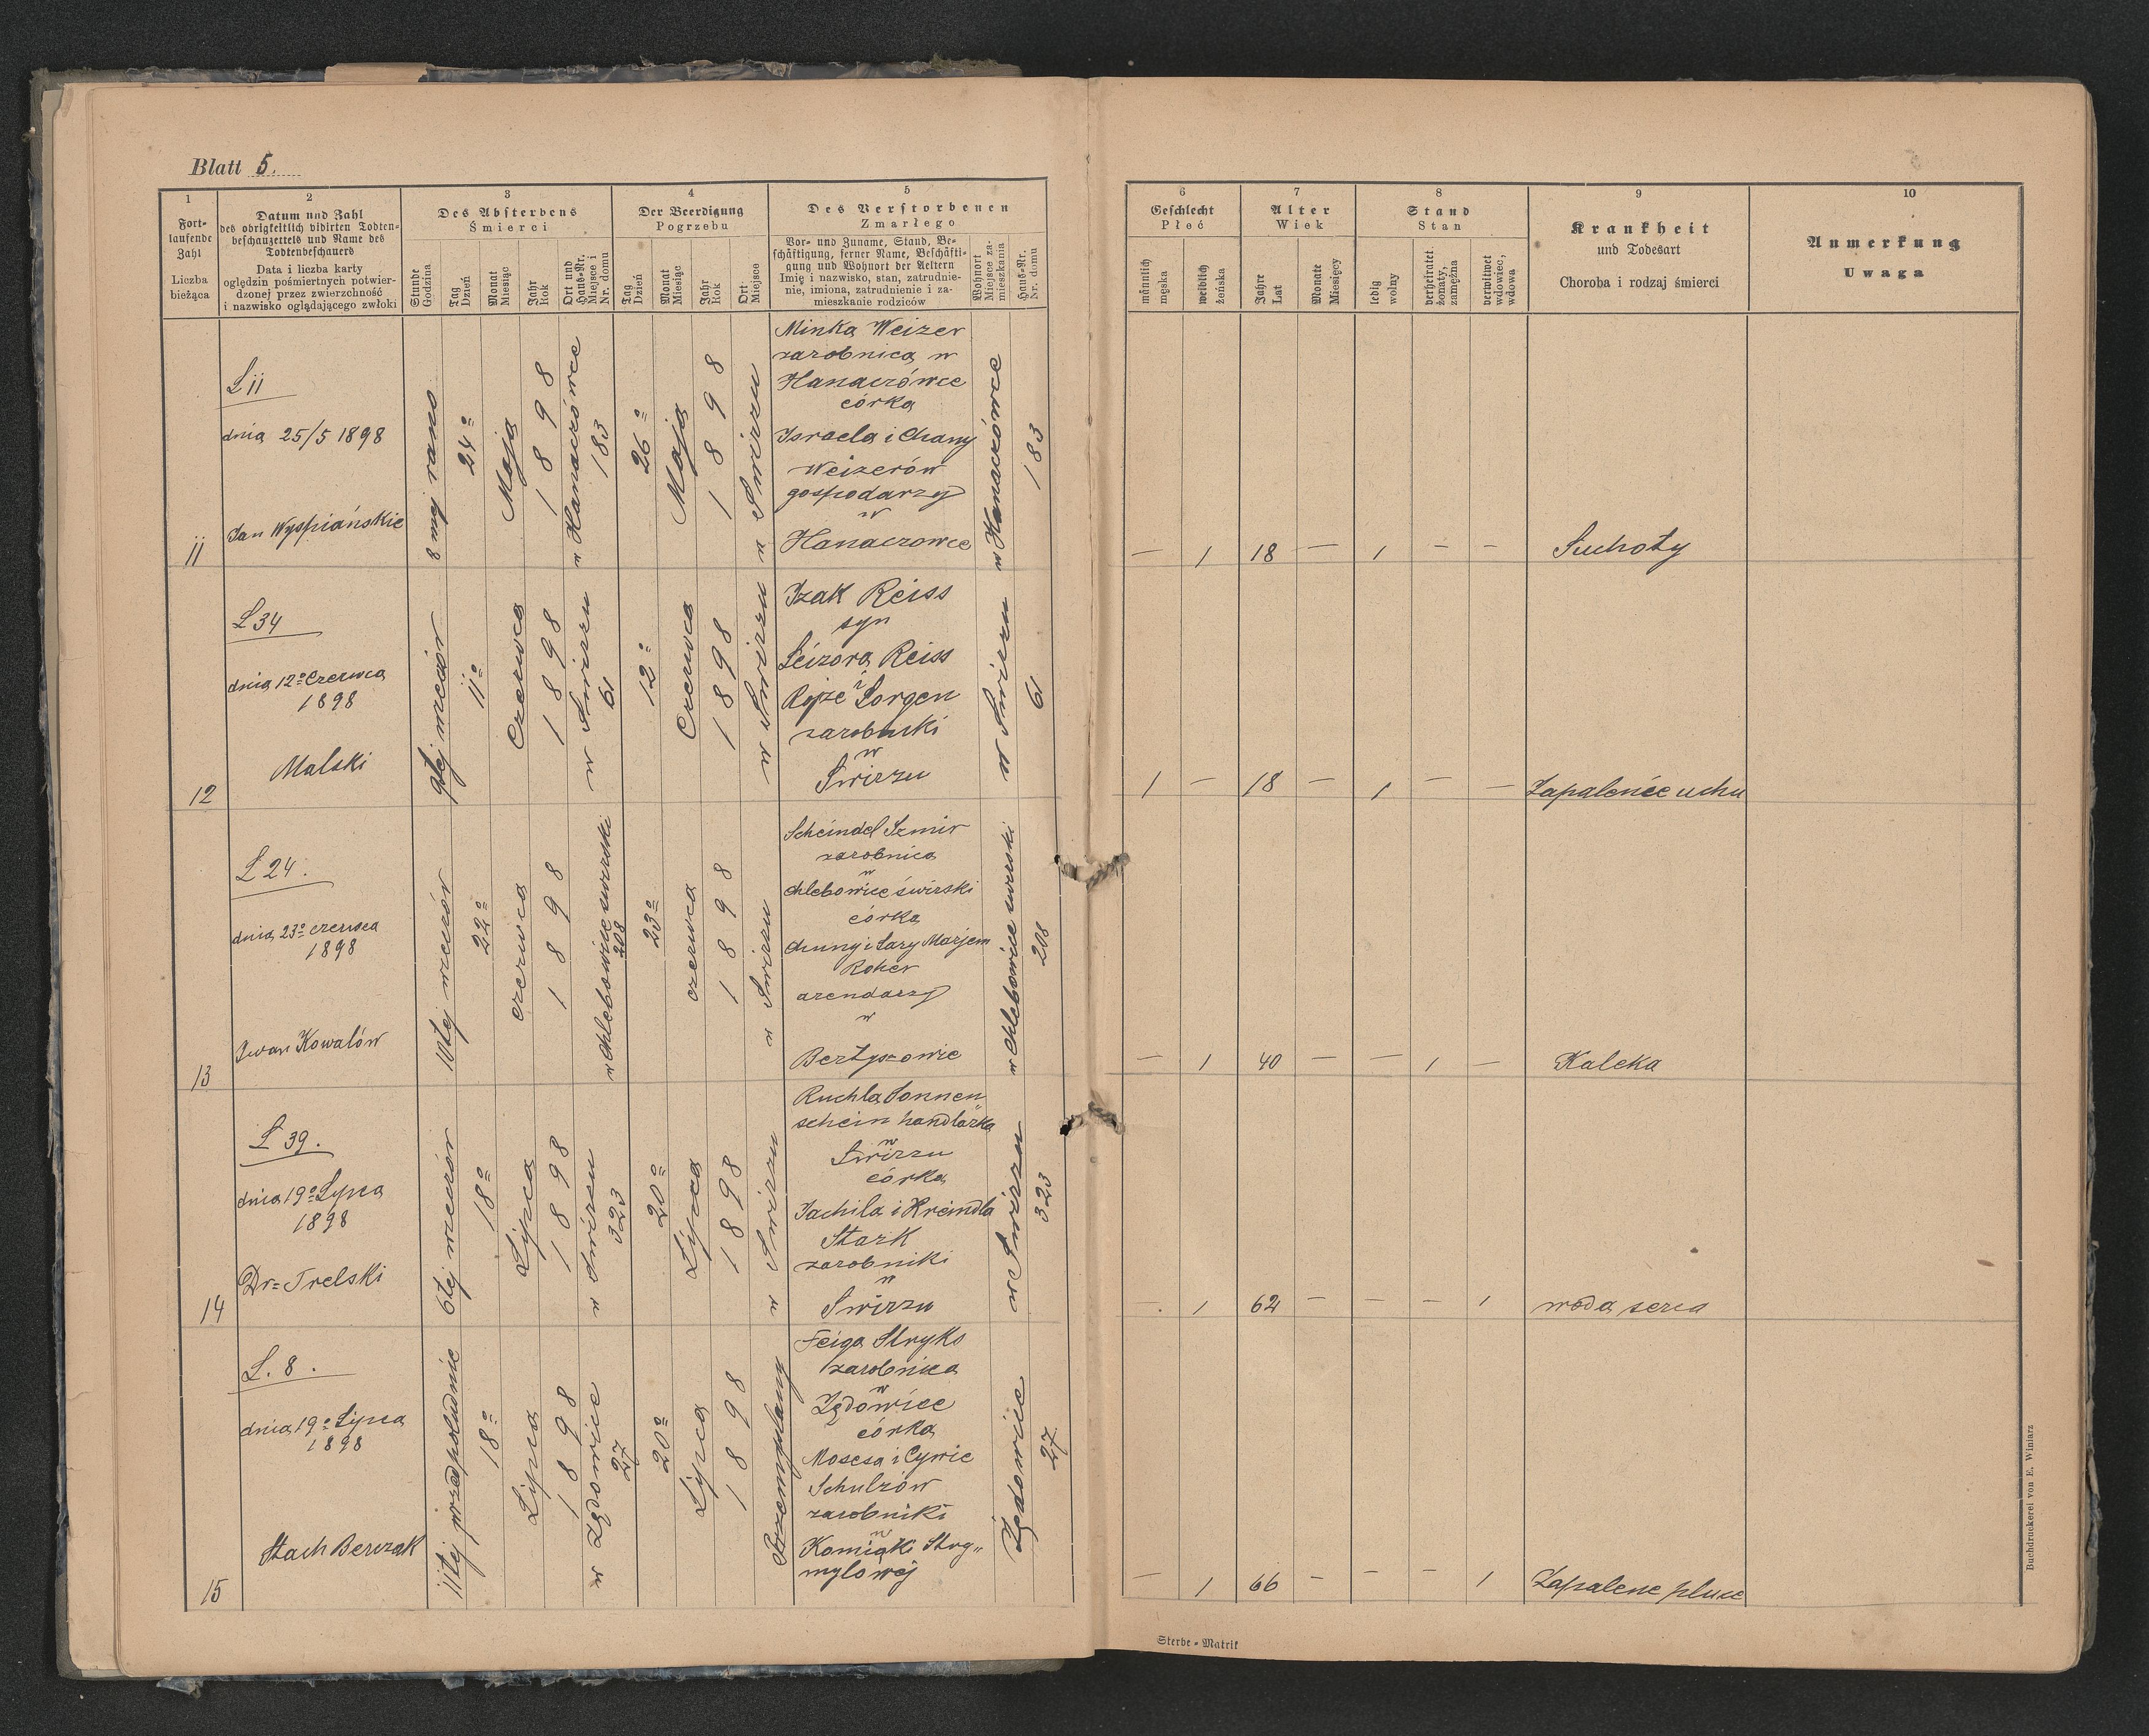 Blatt 5.
1
Fort-
laufende
Zahl
Liczba
bieżąca
2
Datum und Zahl
des obrigkeitlich vidirten Todten-
beschauzettels und Name des
Todtenbeschauers
Data i liczba karty
oględzin pośmiertnych potwier-
dzonej przez zwierzchność
i nazwisko oglądającego zwłoki
3
Des Absterbens
Śmierci
Stunde
Godzina
Tag
Dzień
Monat
Miesiąc
Jahr
Rok
Ort und
Haus-Nr.
Miejsce i
Nr. domu
4
Der Beerdigung
Pogrzebu
Tag
Dzień
Monat
Miesiąc
Jahr
Rok
Ort
Miejsce
5
Des Verstorbenen
Zmarłego
Vor- und Zuname, Stand, Be-
schäftigung, ferner Name, Beschäfti-
gung und Wohnort der Aeltern
Imię i nazwisko, stan, zatrudnie-
nie, imiona, zatrudnienie i za-
mieszkanie rodziców
Wohnort
Miejsce za-
mieszkania
Haus-Nr.
Nr. domu
6
Geschlecht
Płeć
männlich
męska
weiblich
żeńska
7
Alter
Wiek
Jahre
Lat
Monate
Miesięcy
8
Stand
Stan
ledig
wolny
verheiratet
żonaty,
zamężna
verwitwet
wdowiec,
wdowa
9
Krankheit
und Todesart
Choroba i rodzaj śmierci
10
Anmerkung
Uwaga
11
L 11
dnia 25/5 1898
Jan Wyspiańskie
8 mej rano
24º
Maja
1898
w Hanaczówce
183
26º
Maja
1898
w Swirzu
Minka Weizer
zarobnica w
Hanaczówce
córka
Israela i Chany
Weizerów
gospodarzy
w
Hanaczowce
w Hanaczówce
183
— 1 18 — 1 — —
Suchoty
12
L 34
dnia 12º Czerwca
1898
Malski
9tej wieczór
11º
Czerwca
1898
w Swirzu
61
12º
Czerwca
1898
w Swirzu
Izak Reiss
syn
Leizora Reiss
i
Rojze Sorgen
zarobniki
w
Swirzu
w Swirzu
61
1 — 18 — 1 — —
Zapalenie ucha
13
L 24.
dnia 23º czerwca
1898
Iwan Kowalów
10tej wieczór
22º
czerwca
1898
w Chlebowice swirski
208
23º
czerwca
1898
w Swirzu
Scheindel Szmir
zarobnica
w
Chlebowice świrski
córka
Chuny i Sary Marjem
Roker
arendarzy
w
w Chlebowice swirski
208
— 1 40 — — 1 —
Kaleka
14
L 39.
dnia 19º Lypca
1898
Dr= Trelski
6tej wieczór
18º
Lipca
1898
w Swirzu
323
20º
Lipca
1898
w Swirzu
Ruchla Sonnen
schein handlarka
w
Swirzu
córka
Jachila i Kreindla
Stark
zarobniki
w
Swirzu
w Swirzu
323
— 1 62 — — — 1
woda serca
15
L. 8.
dnia 19º Lipca
1898
Stach Berczak
11tej przedpoludnie
18º
Lipca
1898
w Zędowice
27
20º
Lipca
1898
Przemyslany
Feiga Stryks
zarobnica
w
Zędowice
córka
Mosesa i Cywie
Schulzów
zarobniki
w
Komiąki Strg„
mylowéj
Zędowice
27
— 1 66 — — — 1
Zapalene pluce
Sterbe-Matrik
Buchdruckerei von E. Winiarz